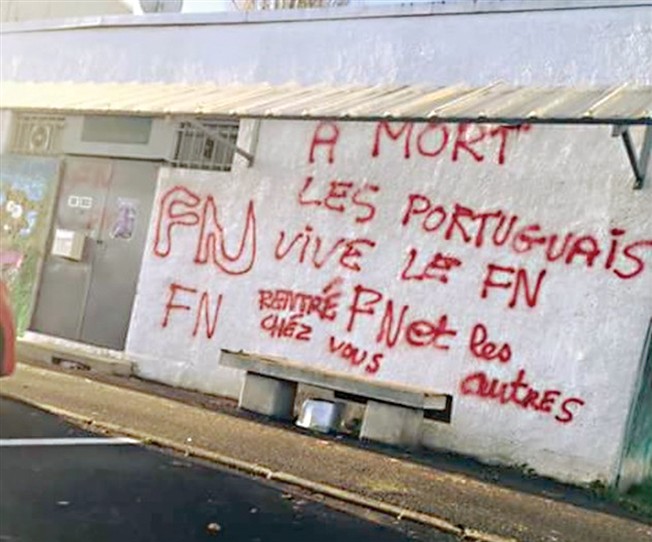 A MORT
LES PORTUGUAIS
VIVE LE FN
FN
FN
RENTRÉ
CHÉZ VOUS
FN et les
autres
FN